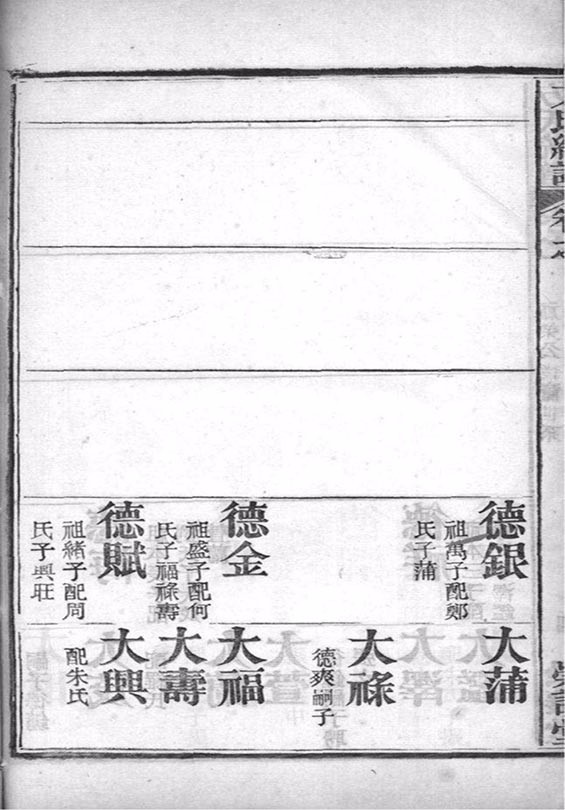 德銀
祖萬子配鄭
氏子蒲
德金
祖盛子配何
氏子福祿壽
德賦
祖緒子配周
氏子興旺
大蒲
大祿
德爽嗣子
大福
大壽
大興
配朱氏